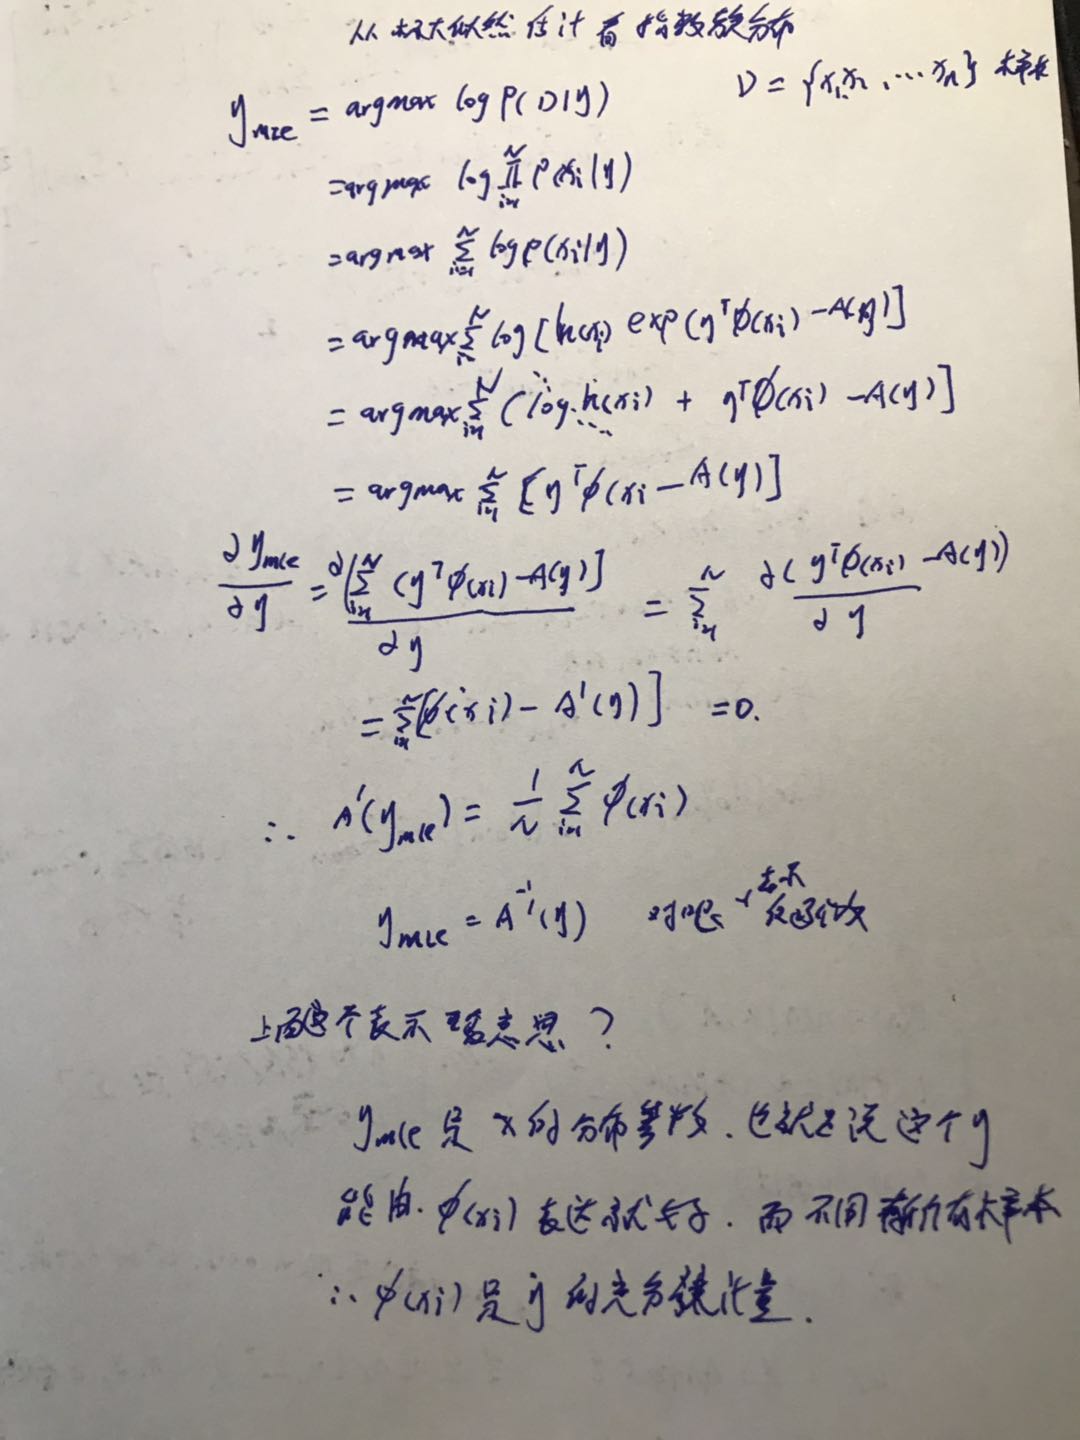 从极大似然估计看指数族分布
D = {x₁, x₂, … xₙ} 样本
y_mle = argmax log P(D|y)
= argmax log ∏_{i=1}^N P(xᵢ|y)
= argmax ∑_{i=1}^N log P(xᵢ|y)
= argmax ∑_{i=1}^N log [h(xᵢ) exp(yᵀφ(xᵢ) − A(y)]
= argmax ∑_{i=1}^N (log h(xᵢ) + yᵀφ(xᵢ) − A(y)]
= argmax ∑_{i=1}^N [yᵀφ(xᵢ − A(y)]
∂y_mle/∂y = ∂[∑_{i=1}^N (yᵀφ(xᵢ) − A(y)]/∂y = ∑_{i=1}^N ∂(yᵀφ(xᵢ) − A(y))/∂y
= ∑_{i=1}^N [φ(xᵢ) − A′(y)] = 0.
∴ A′(y_mle) = 1/N ∑_{i=1}^N φ(xᵢ)
y_mle = A⁻¹(y) 对吧 表示反函数
上面这个表示 意思？
y_mle 是 x 的分布参数. 也就是说这个 y
能由 φ(xᵢ) 表达就 . 而不用 所有样本
∴ φ(xᵢ) 是 y 的充分统计量.